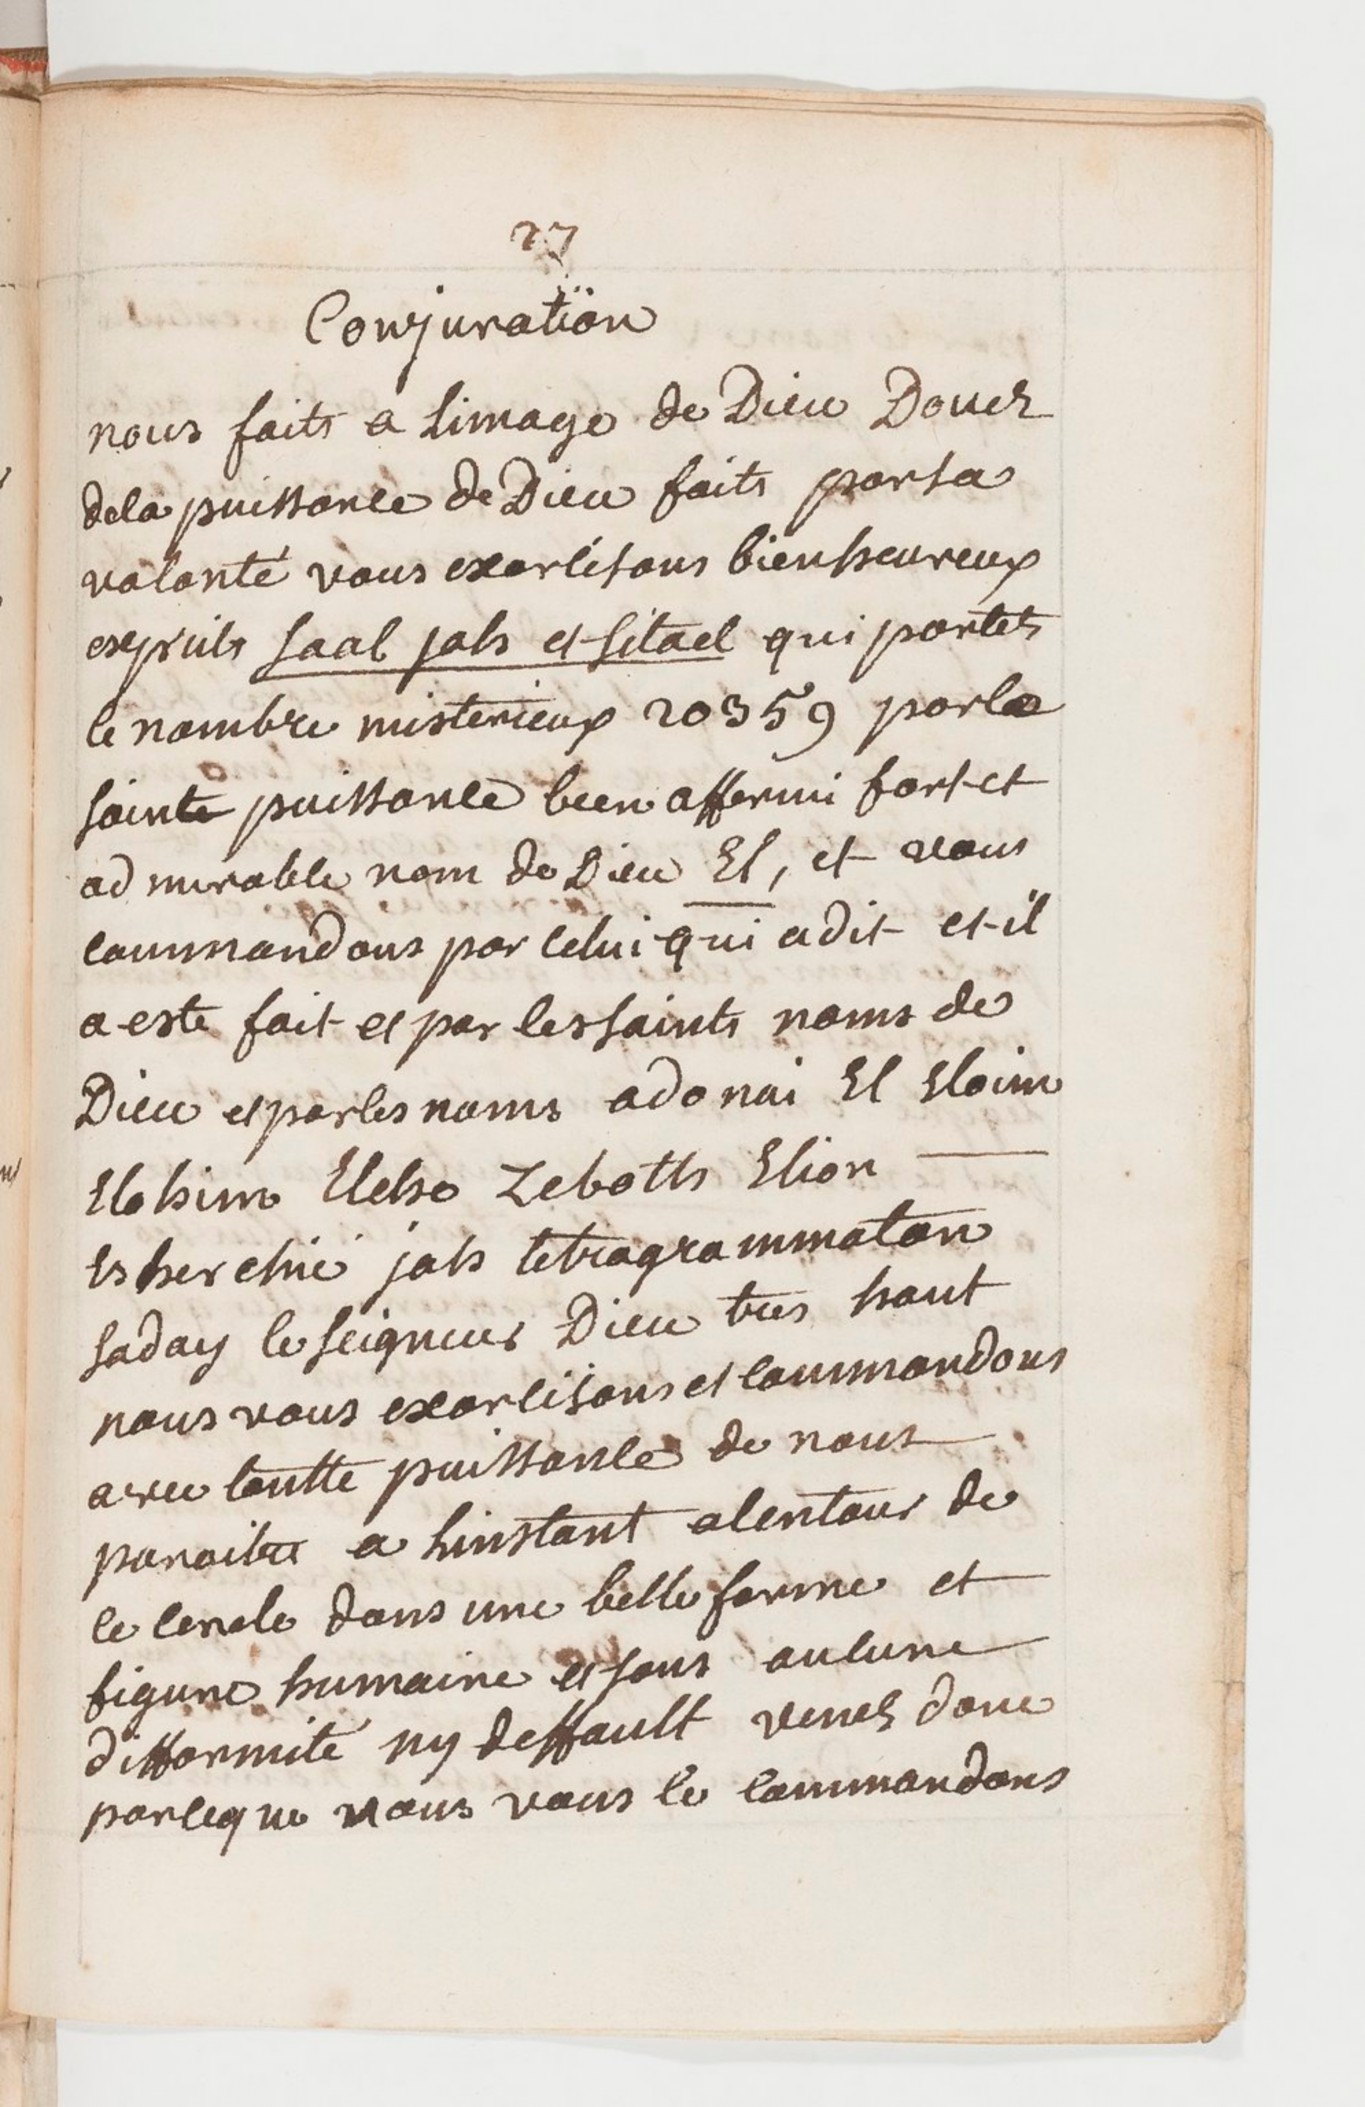 27
Conjuration
nous faits a limage de Dieu Doues
dela puissance de Dieu faits parsa
volonté vous exorcisons bienheureux
esprits saal jah et sitael qui portés
le nombre misterieux 20359 parla
sainte puissance bien affermi fort et
admirable nom de Dieu El, et vous
commandons par celui qui adit et il
a esté fait et par les saints noms de
Dieu et par les noms adonai El Eloim
Elohim Elehe Zeboth Elion
Escherchie jah tetragrammaton
saday le seigneur Dieu tres haut
nous vous exorcisons et commandons
avec toutte puissance de nous
paroitre a linstant alentour de
ce cercle dans une belle forme et
figure humaine et sans aucune
difformité ny deffault venés donc
parceque nous vous le commandons